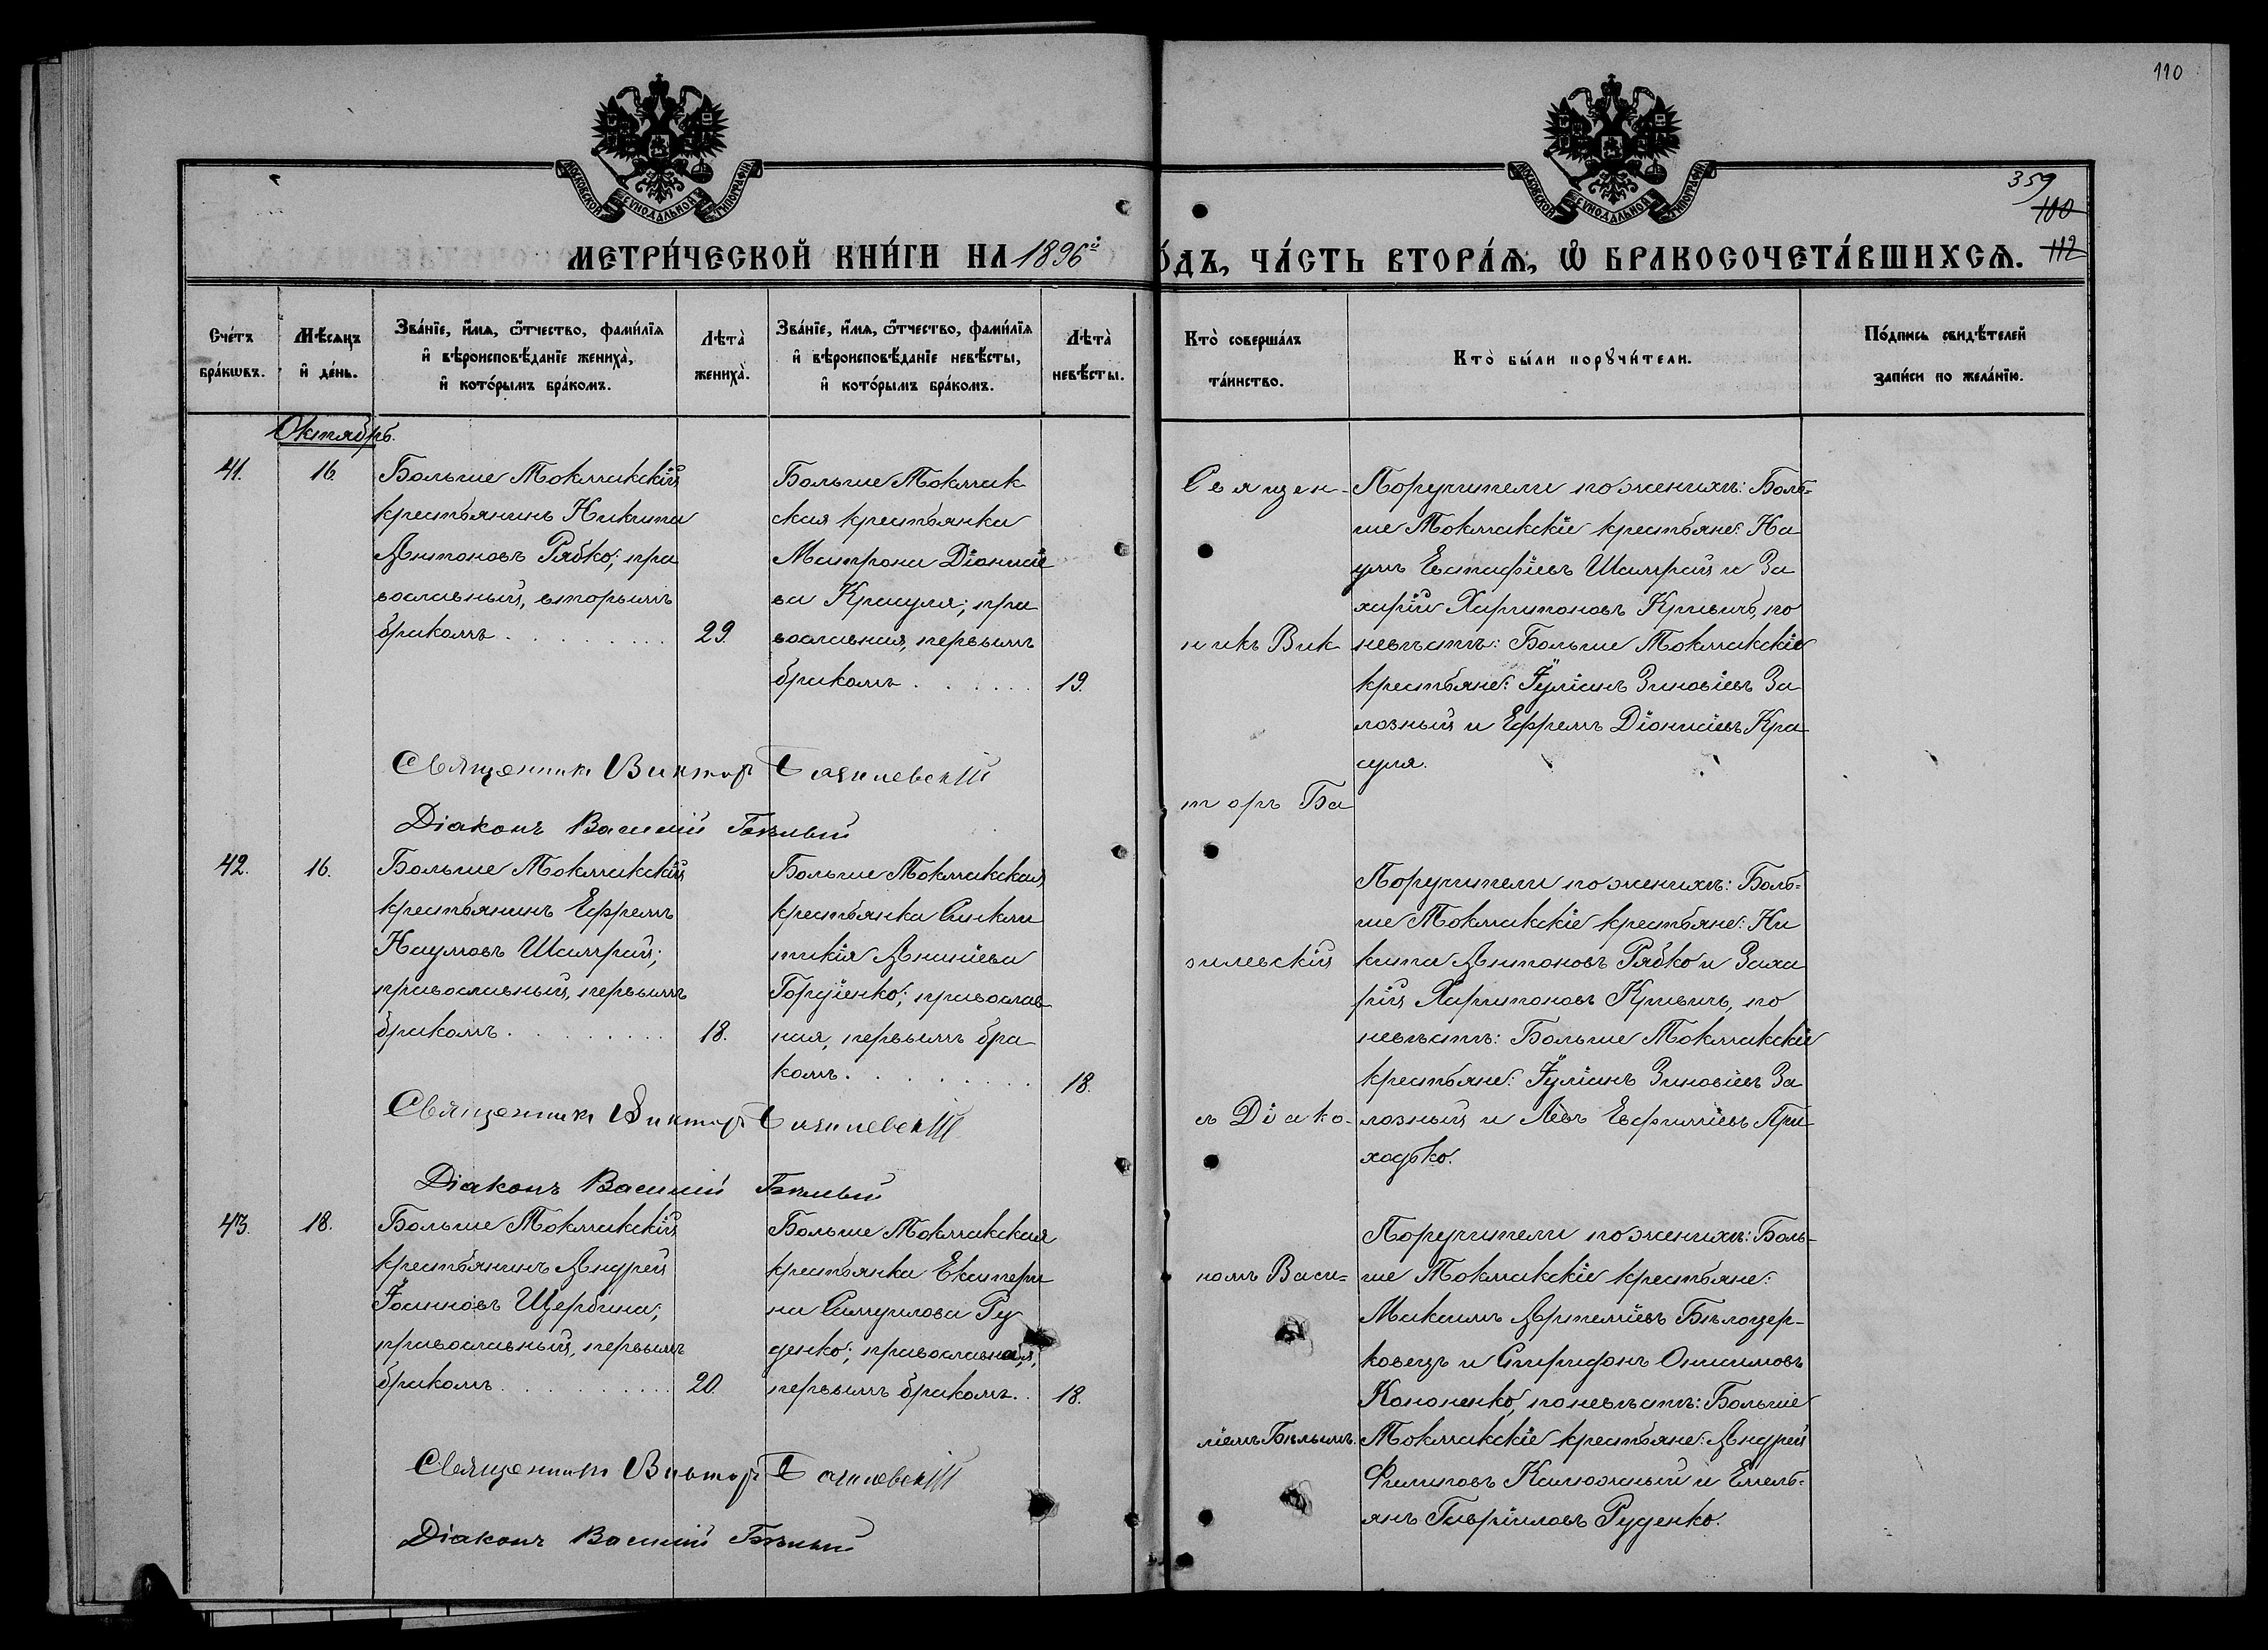 110
МОСКОВСКОЙ СѴНОДАЛЬНОЙ ТИПОГРАФІИ
МОСКОВСКОЙ СѴНОДАЛЬНОЙ ТИПОГРАФІИ
359
100
112
МЕТРИ́ЧЕСКОЙ КНИ́ГИ НА 1896й
О́ДЪ, ЧА́СТЬ ВТОРА́Ѧ, Ѡ҆ БРАКОСОЧЕТА́ВШИХСѦ.
Сче́тъ
бра́кѡвъ.
Мѣ́сѧцъ
и҆ де́нь.
Зва́нїе, и҆́мѧ, ѻ҆́тчество, фами́лїѧ
и҆ вѣроисповѣ́данїе жениха̀,
и҆ кото́рымъ бра́комъ.
Лѣта̀
жениха̀.
Зва́нїе, и҆́мѧ, ѻ҆́тчество, фами́лїѧ
и҆ вѣроисповѣ́данїе невѣ́сты,
и҆ кото́рымъ бра́комъ.
Лѣта̀
невѣ́сты.
Кто̀ соверша́лъ
та́инство.
Кто̀ бы́ли порꙋчи́тели.
По́дпись свидѣ́телей
за́писи по жела́нїю.
Октябрь.
41.
16.
Больше Токмакскій
крестьянинъ Никита
Антоновъ Рябко; пра
вославный, вторымъ
бракомъ . . . . . . . . .
29.
Больше Токмак
ская крестьянка
Матрона Діонисіе
ва Красуля; пра
вославная, первымъ
бракомъ . . . . . .
19.
Поручители по женихѣ: Боль=
ше Токмакскіе крестьяне: На
умъ Евстафіевъ Шамрай и За
харій Харитоновъ Кривичъ, по
невѣстѣ: Больше Токмакскіе
крестьяне: Іуліанъ Зиновіевъ За
лозный и Ефремъ Діонисіевъ Кра
суля.
Священникъ Викторъ Базилевскій
Діаконъ Василій Бѣлый
42.
16.
Больше Токмакскій
крестьянинъ Ефремъ
Наумовъ Шамрай;
православный, первымъ
бракомъ . . . . . . . . .
18.
Больше Токмакская
крестьянка Синкли
тикія Ананіева
Гордіенко; православ
ная, первымъ бра
комъ . . . . . . . . .
18.
Поручители по женихѣ: Боль=
ше Токмакскіе крестьяне: Ни
кита Антоновъ Рябко и Заха
рій Харитоновъ Кривичъ, по
невѣстѣ: Больше Токмакскіе
крестьяне: Іуліанъ Зиновіевъ За
лозный и Левъ Евфиміевъ При
ходько.
Священникъ Викторъ Базилевскій
Діаконъ Василій Бѣлый
43.
18.
Больше Токмакскій
крестьянинъ Андрей
Іоанновъ Щербина;
православный, первымъ
бракомъ . . . . . . . . . .
20.
Больше Токмакская
крестьянка Екатери
на Самуилова Ру
денко; православная,
первымъ бракомъ . .
18.
Поручители по женихѣ: Боль-
ше Токмакскіе крестьяне:
Максимъ Артеміевъ Бѣлоцер-
ковецъ и Спиридонъ Онисимовъ
Кононенко, по невѣстѣ: Больше
Токмакскіе крестьяне: Андрей
Филиповъ Калюжный и Емель=
янъ Гавріиловъ Руденко.
Священникъ Викторъ Базилевскій
Діаконъ Василій Бѣлый
Священ-
никъ Вик
торъ Ба
зилевскій
съ Діако-
номъ Васи=
ліемъ Бѣлымъ.